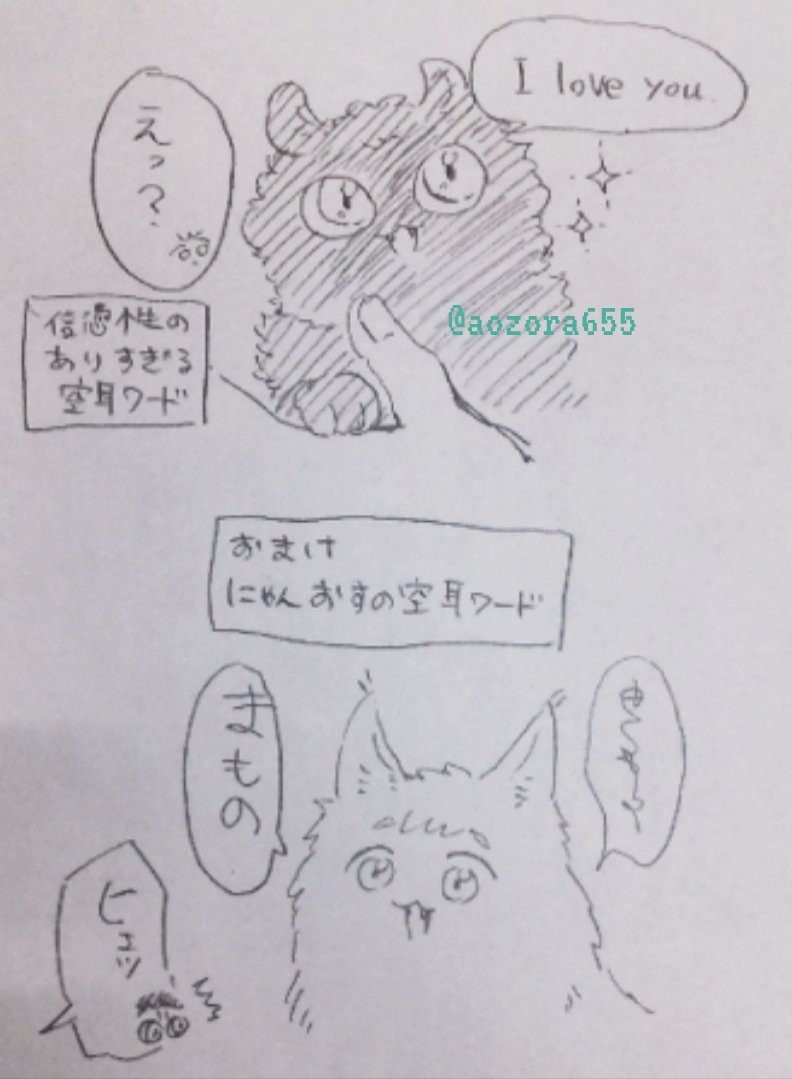 I love you
えっ?
信憑性の
ありすぎる
空耳ワード
@aozora655
おまけ
にゃんおすの空耳ワード
きもの
ヒェッ